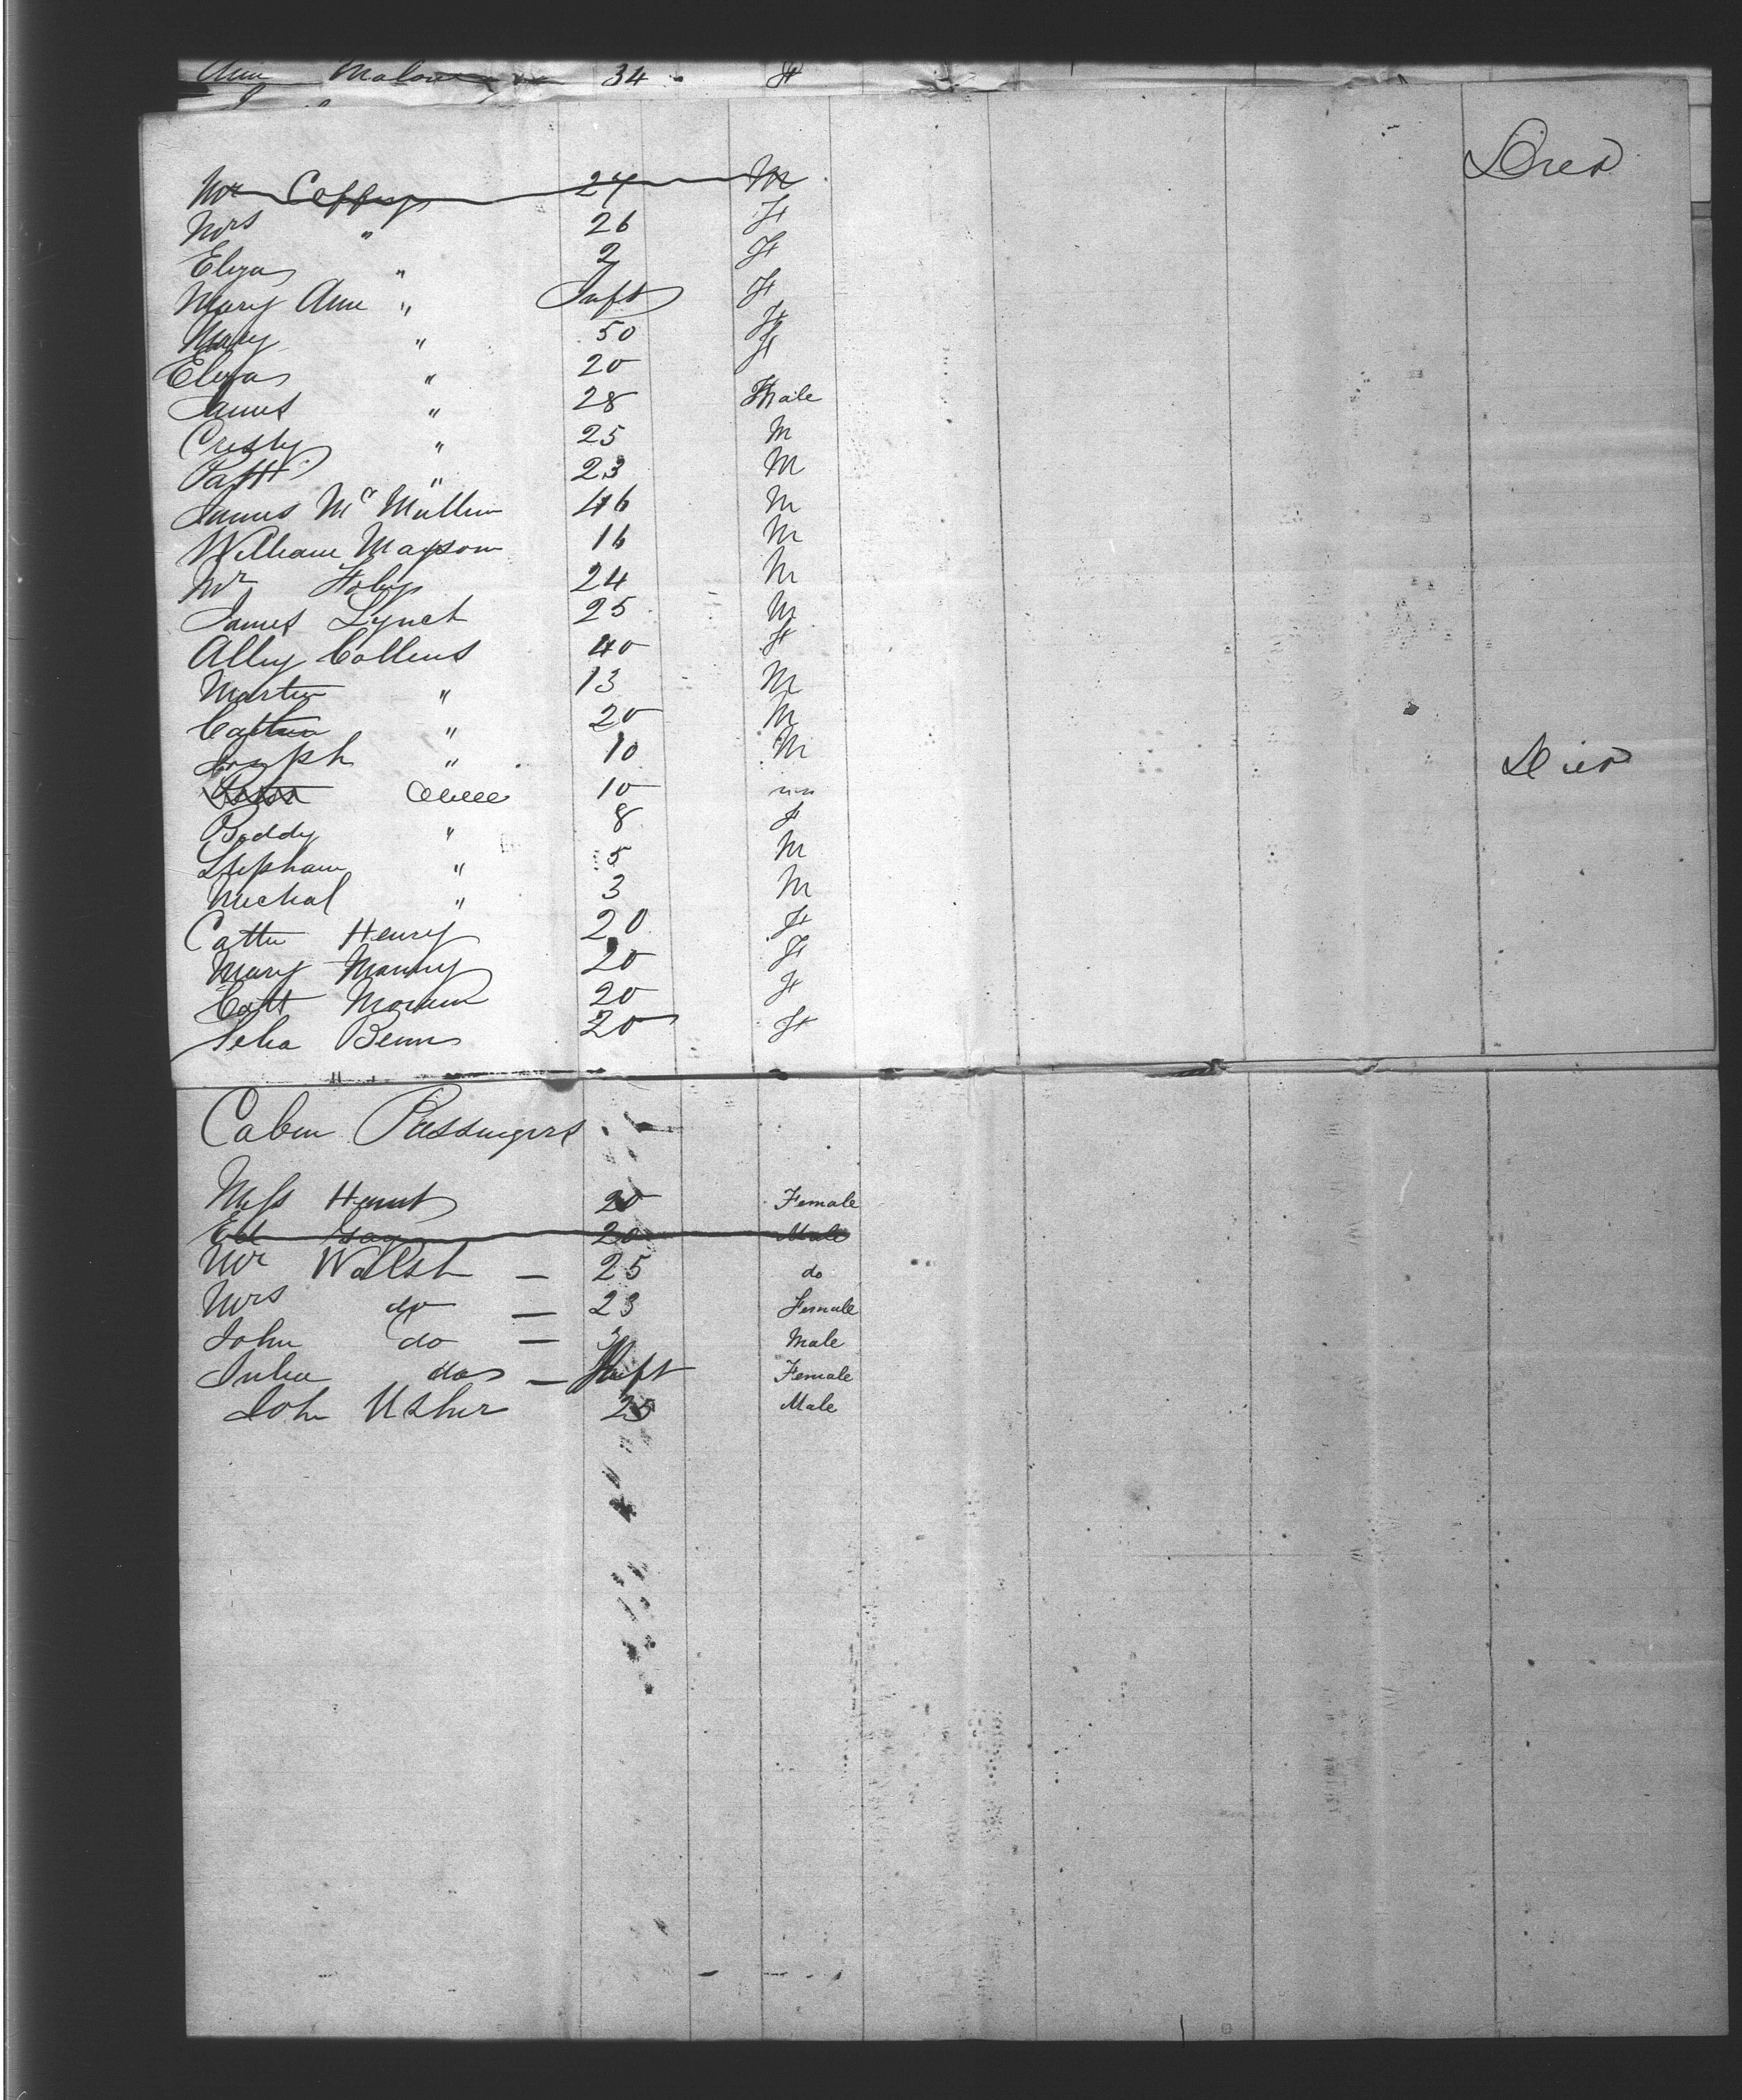 Ann Malow 34 F
Mr Caffrey 27 M Died
Mrs " 26 F
Eliza " 2 F
Mary Ann " Inft F
Mary " 50 F
Eliza " 20 F
James " 28 Male
" 25 M
Patt " 23 M
James Mc Mullin 46 M
William Mayson 16 M
Mr 24 M
James Lynch 25 M
Alley Collins 40 F
Martin " 13 M
" 20 M
Joseph " 10 M Died
10
Biddy " 8 F
Stepham " 5 M
Michal " 3 M
Cattu Henry 20 F
Mary Manny 20 F
Catt Moran 20 F
Benn 20 F
Cabin Passengers
Miss 20 Female
Ed 20 Male
Mr Walsh — 25 do
Mrs do — 23 Female
John do — 3 Male
Julia do — Inft Female
John Usher 25 Male